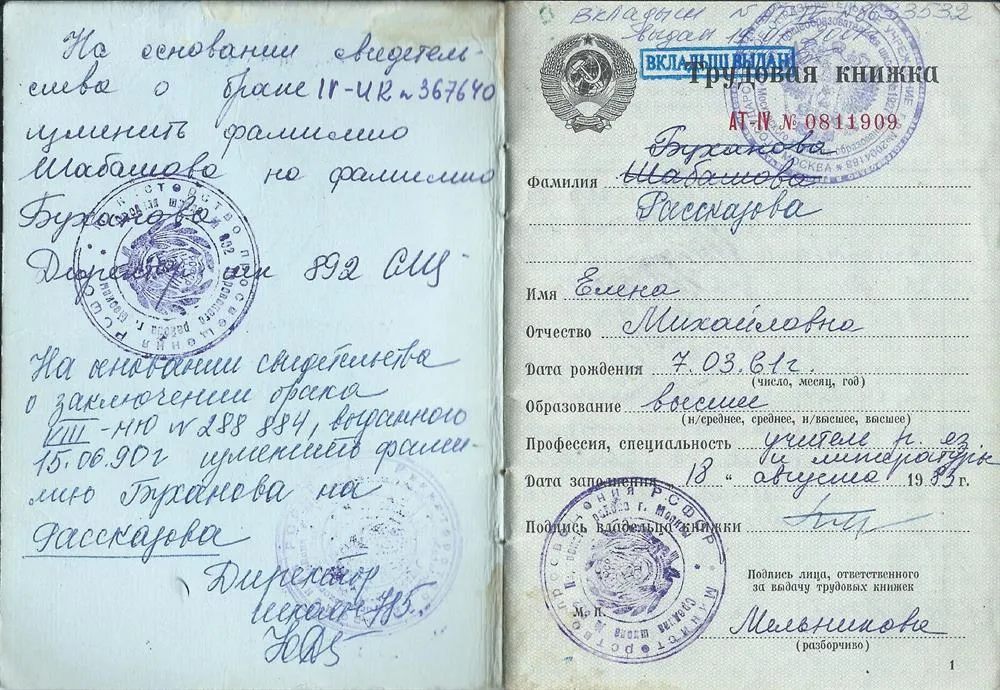 На основании свидетель-
ства о браке IV-ИК № 367640
изменить фамилию
Шабашова на фамилию
Буханова
Директор шк 892
На основании свидетельства
о заключении брака
VIII-МЮ № 288884, выданного
15.06.90г изменить фами-
лию Буханова на
Рассказова
Директор
школы 785
Вкладыш №
Выдан
ВКЛАДЫШ ВЫДАН
Трудовая книжка
АТ-IV № 0811909
Буханова
Фамилия Шабашова
Рассказова
Имя Елена
Отчество Михайловна
Дата рождения 7.03.61г.
(число, месяц, год)
Образование высшее
(н/среднее, среднее, н/высшее, высшее)
Профессия, специальность учитель р. яз.
и литературы
Дата заполнения „18“ августа 1983г.
Подпись владельца книжки
Подпись лица, ответственного
за выдачу трудовых книжек
М. П.
Мельникова
(разборчиво)
1